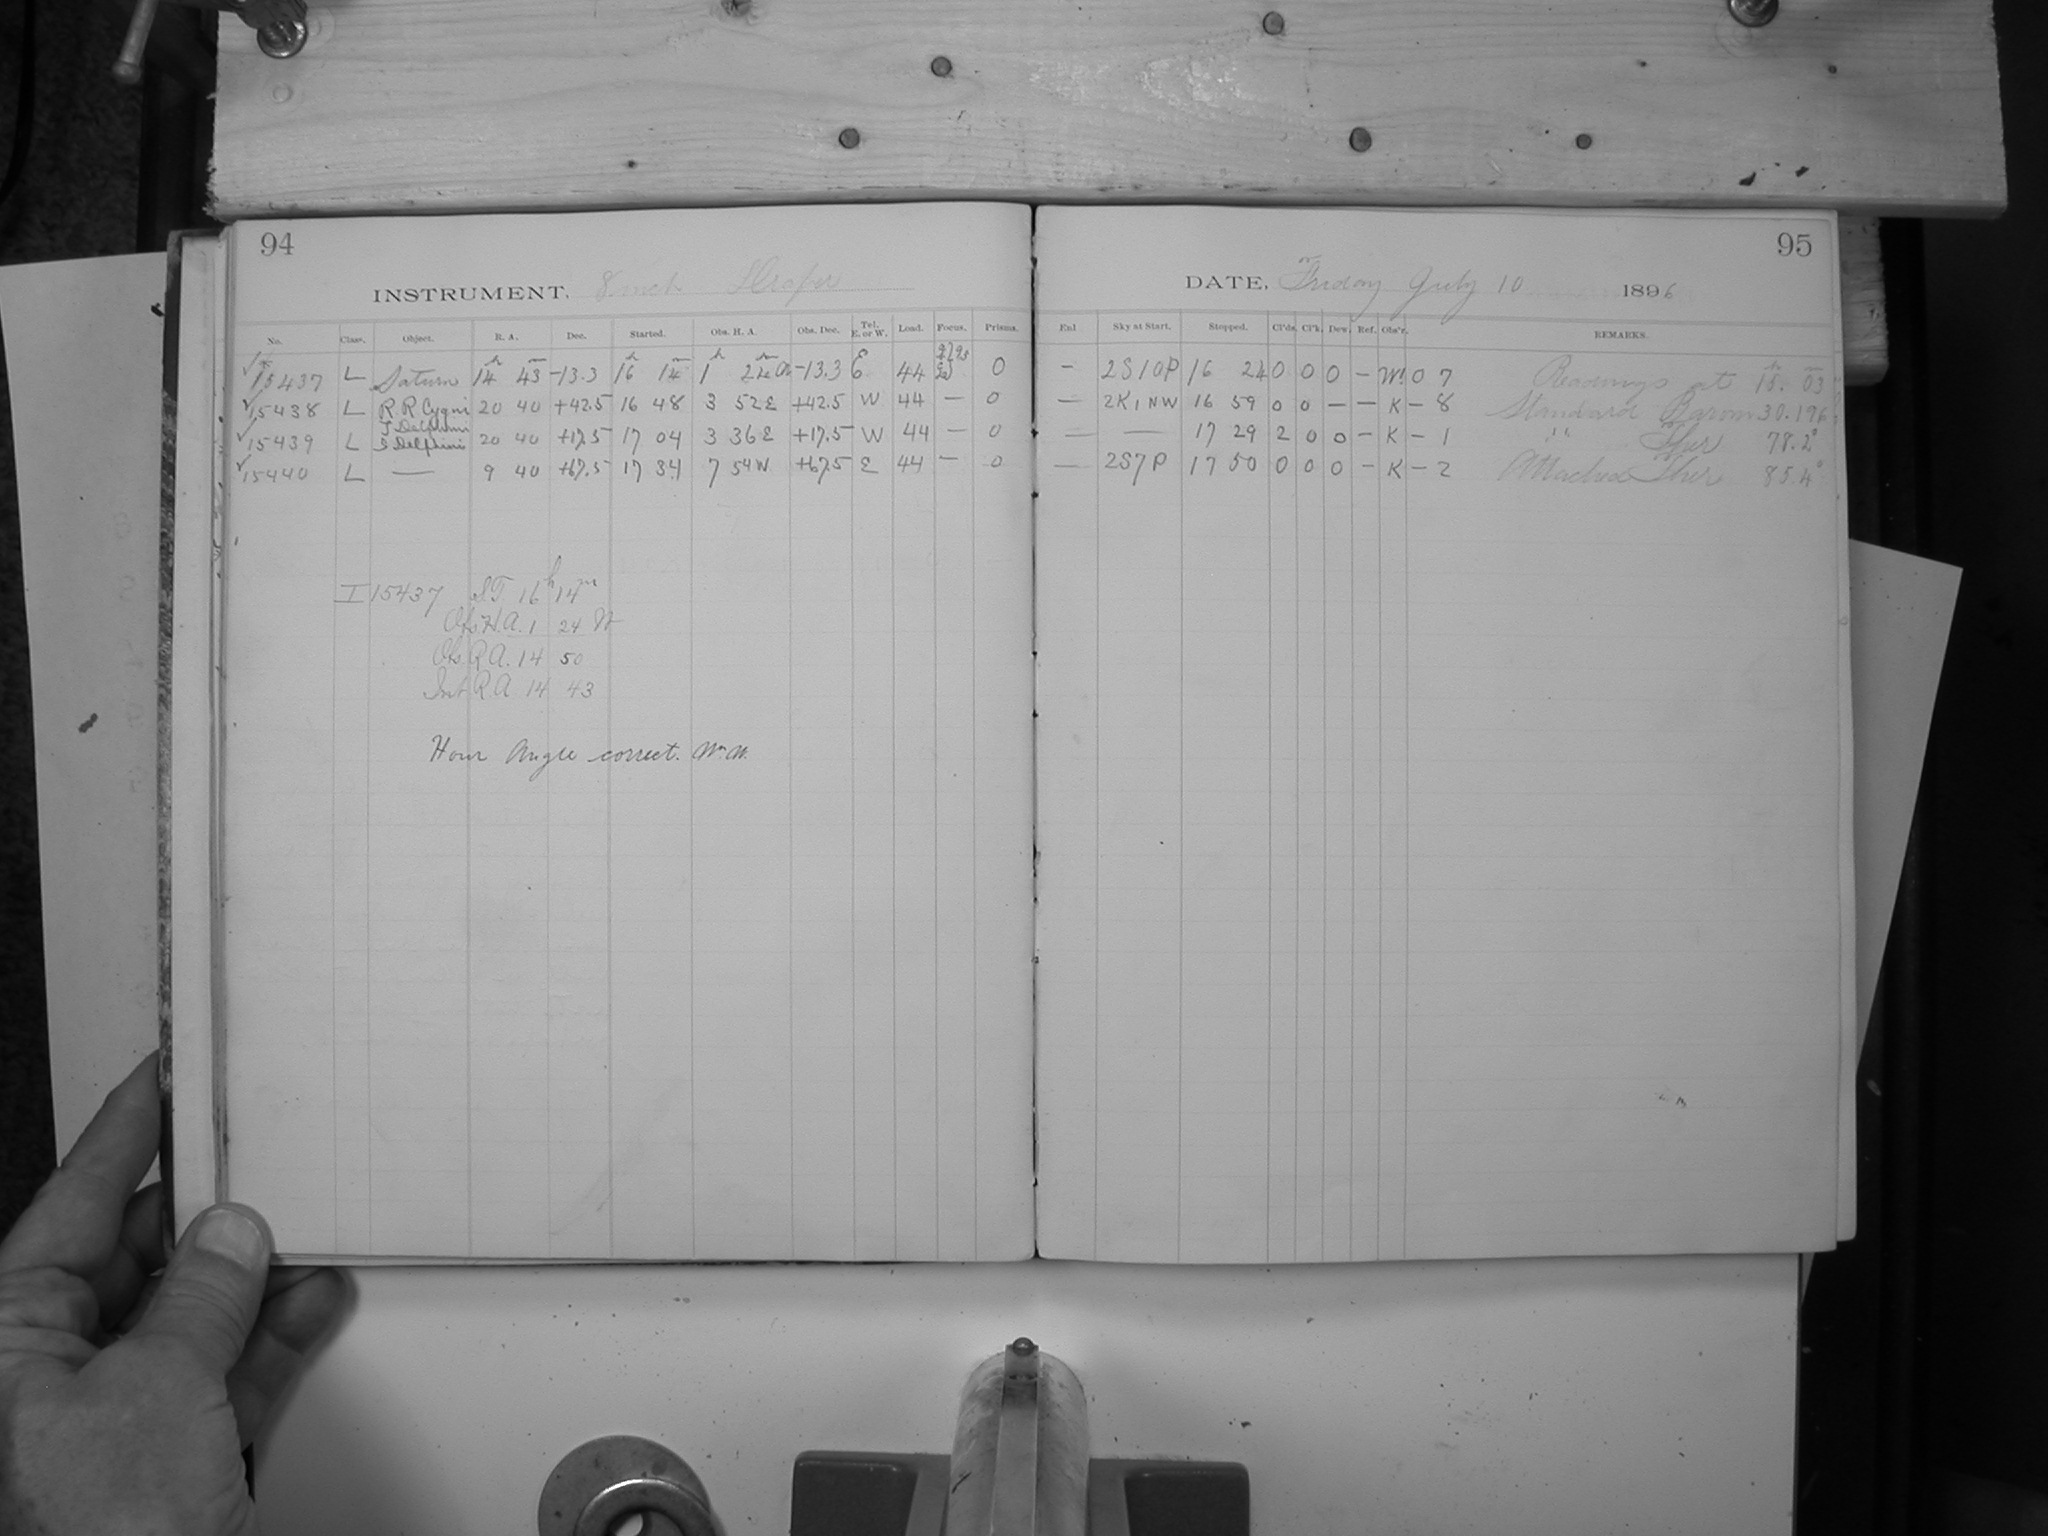 94
INSTRUMENT. 8 inch Draper
No. Class. Object. R. A. Dec. Started. Obs. H. A. Obs. Dec. Tel. E. or W. Load. Focus. Prisms.
15437 L Saturn 14h 43m -13.3 16h 14m 1h 24m -13.3 E 44 0
15438 L R R Cygni 20 40 +42.5 16 48 3 52 E +42.5 W 44 — 0
T Delphini
15439 L S Delphini 20 40 +17.5 17 04 3 36 E +17.5 W 44 — 0
15440 L — 9 40 +67.5 17 34 7 54 W +67.5 E 44 — 0
I 15437 ST 16h 14m
Obs H.A. 1 24 W
Obs R A. 14 50
Int R A 14 43
Hour Angle correct. Wm. M.
95
DATE, Friday July 10 1896
Enl Sky at Start. Stopped. Cl'ds. Cl'k. Dew. Ref. Obs'r. REMARKS.
— 2S10P 16 24 0 0 0 — W! 0 7 Readings at 15h 03m
— 2K1NW 16 59 0 0 — — K — 8 Standard Barom 30.196
— — 17 29 2 0 0 — K — 1 " Ther 78.2°
— 2S7P 17 50 0 0 0 — K — 2 Attached Ther 85.4°